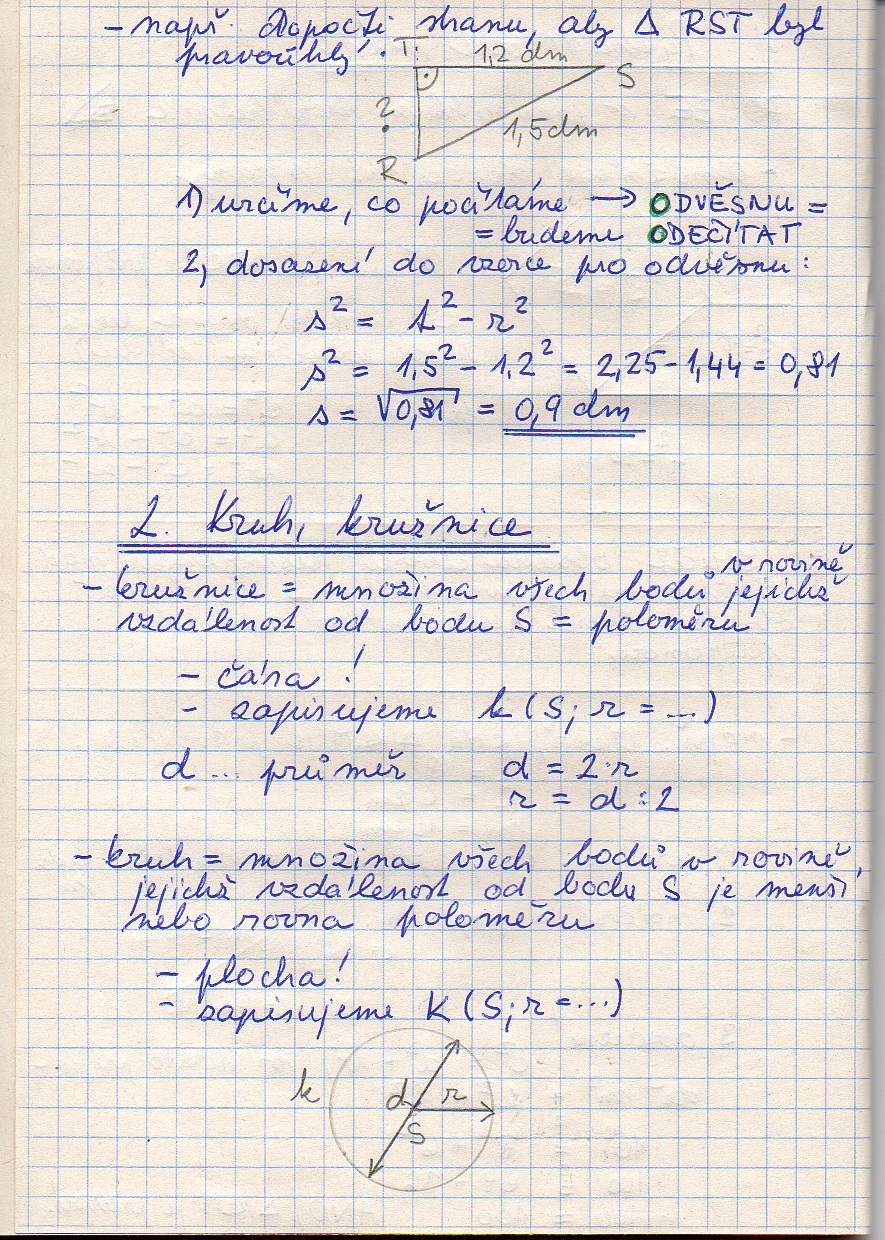 - např. Dopočti stranu, aby Δ RST byl
pravoúhlý.
T
1,2 dm
S
?
1,5 dm
R
1) určíme, co počítáme → ODVĚSNU =
= budeme ODEČÍTAT
2, dosazení do vzorce pro odvěsnu:
s² = t² - r²
s² = 1,5² - 1,2² = 2,25 - 1,44 = 0,81
s = √0,81 = 0,9 dm
2. Kruh, kružnice
- kružnice = množina všech bodů v rovině jejichž
vzdálenost od bodu S = poloměru
- čára!
- zapisujeme k (S; r = ...)
d ... průměr d = 2·r
r = d : 2
- kruh = množina všech bodů v rovině,
jejichž vzdálenost od bodu S je menší
nebo rovna poloměru
- plocha!
- zapisujeme K (S; r = ...)
k
d
r
S